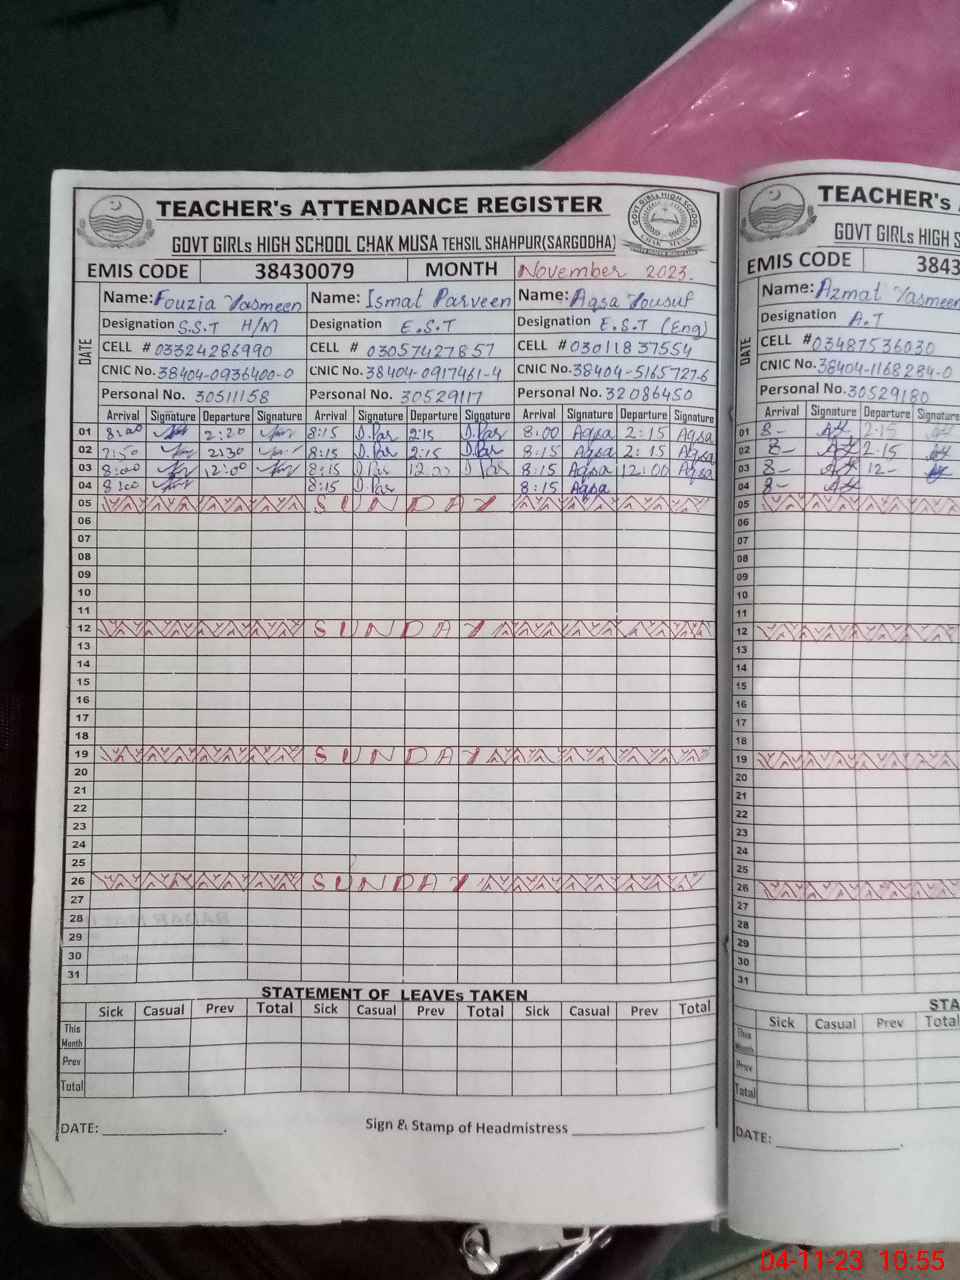 TEACHER's ATTENDANCE REGISTER
GOVT GIRLs HIGH SCHOOL CHAK MUSA TEHSIL SHAHPUR(SARGODHA)
EMIS CODE 38430079 MONTH November 2023.
DATE
Name: Fouzia Yasmeen Name: Ismat Parveen Name: Aqsa Yousuf
Designation S.S.T H/M Designation E.S.T Designation E.S.T (Eng)
CELL # 03324286990 CELL # 03057427857 CELL # 03011837554
CNIC No. 38404-0936400-0 CNIC No. 38404-0917461-4 CNIC No. 38404-5165727-6
Personal No. 30511158 Personal No. 30529117 Personal No. 32086450
Arrival Signature Departure Signature Arrival Signature Departure Signature Arrival Signature Departure Signature
01 8:00 2:20 8:15 I.Par 2:15 I.Par 8:00 Aqsa 2:15 Aqsa
02 2:30 8:15 I.Par 2:15 I.Par 8:15 Aqsa 2:15 Aqsa
03 8:00 12:00 8:15 I.Par 12:00 I.Par 8:15 Aqsa 12:00 Aqsa
04 8:00 8:15 I.Par 8:15 Aqsa
05 SUNDAY
06
07
08
09
10
11
12 SUNDAY
13
14
15
16
17
18
19 SUNDAY
20
21
22
23
24
25
26 SUNDAY
27
28
29
30
31
STATEMENT OF LEAVEs TAKEN
Sick Casual Prev Total Sick Casual Prev Total Sick Casual Prev Total
This Month
Prev
Total
DATE: Sign & Stamp of Headmistress
TEACHER's
GOVT GIRLs HIGH S
EMIS CODE 3843
DATE
Name: Azmat Yasmeen
Designation A.T
CELL # 03487536030
CNIC No. 38404-1168284-0
Personal No. 30529180
Arrival Signature Departure Signature
01 8- 2-15
02 8- 2-15
03 8- 12-
04 8-
05
06
07
08
09
10
11
12
13
14
15
16
17
18
19
20
21
22
23
24
25
26
27
28
29
30
31
STA
Sick Casual Prev Total
This Month
Prev
Total
DATE:
04-11-23 10:55